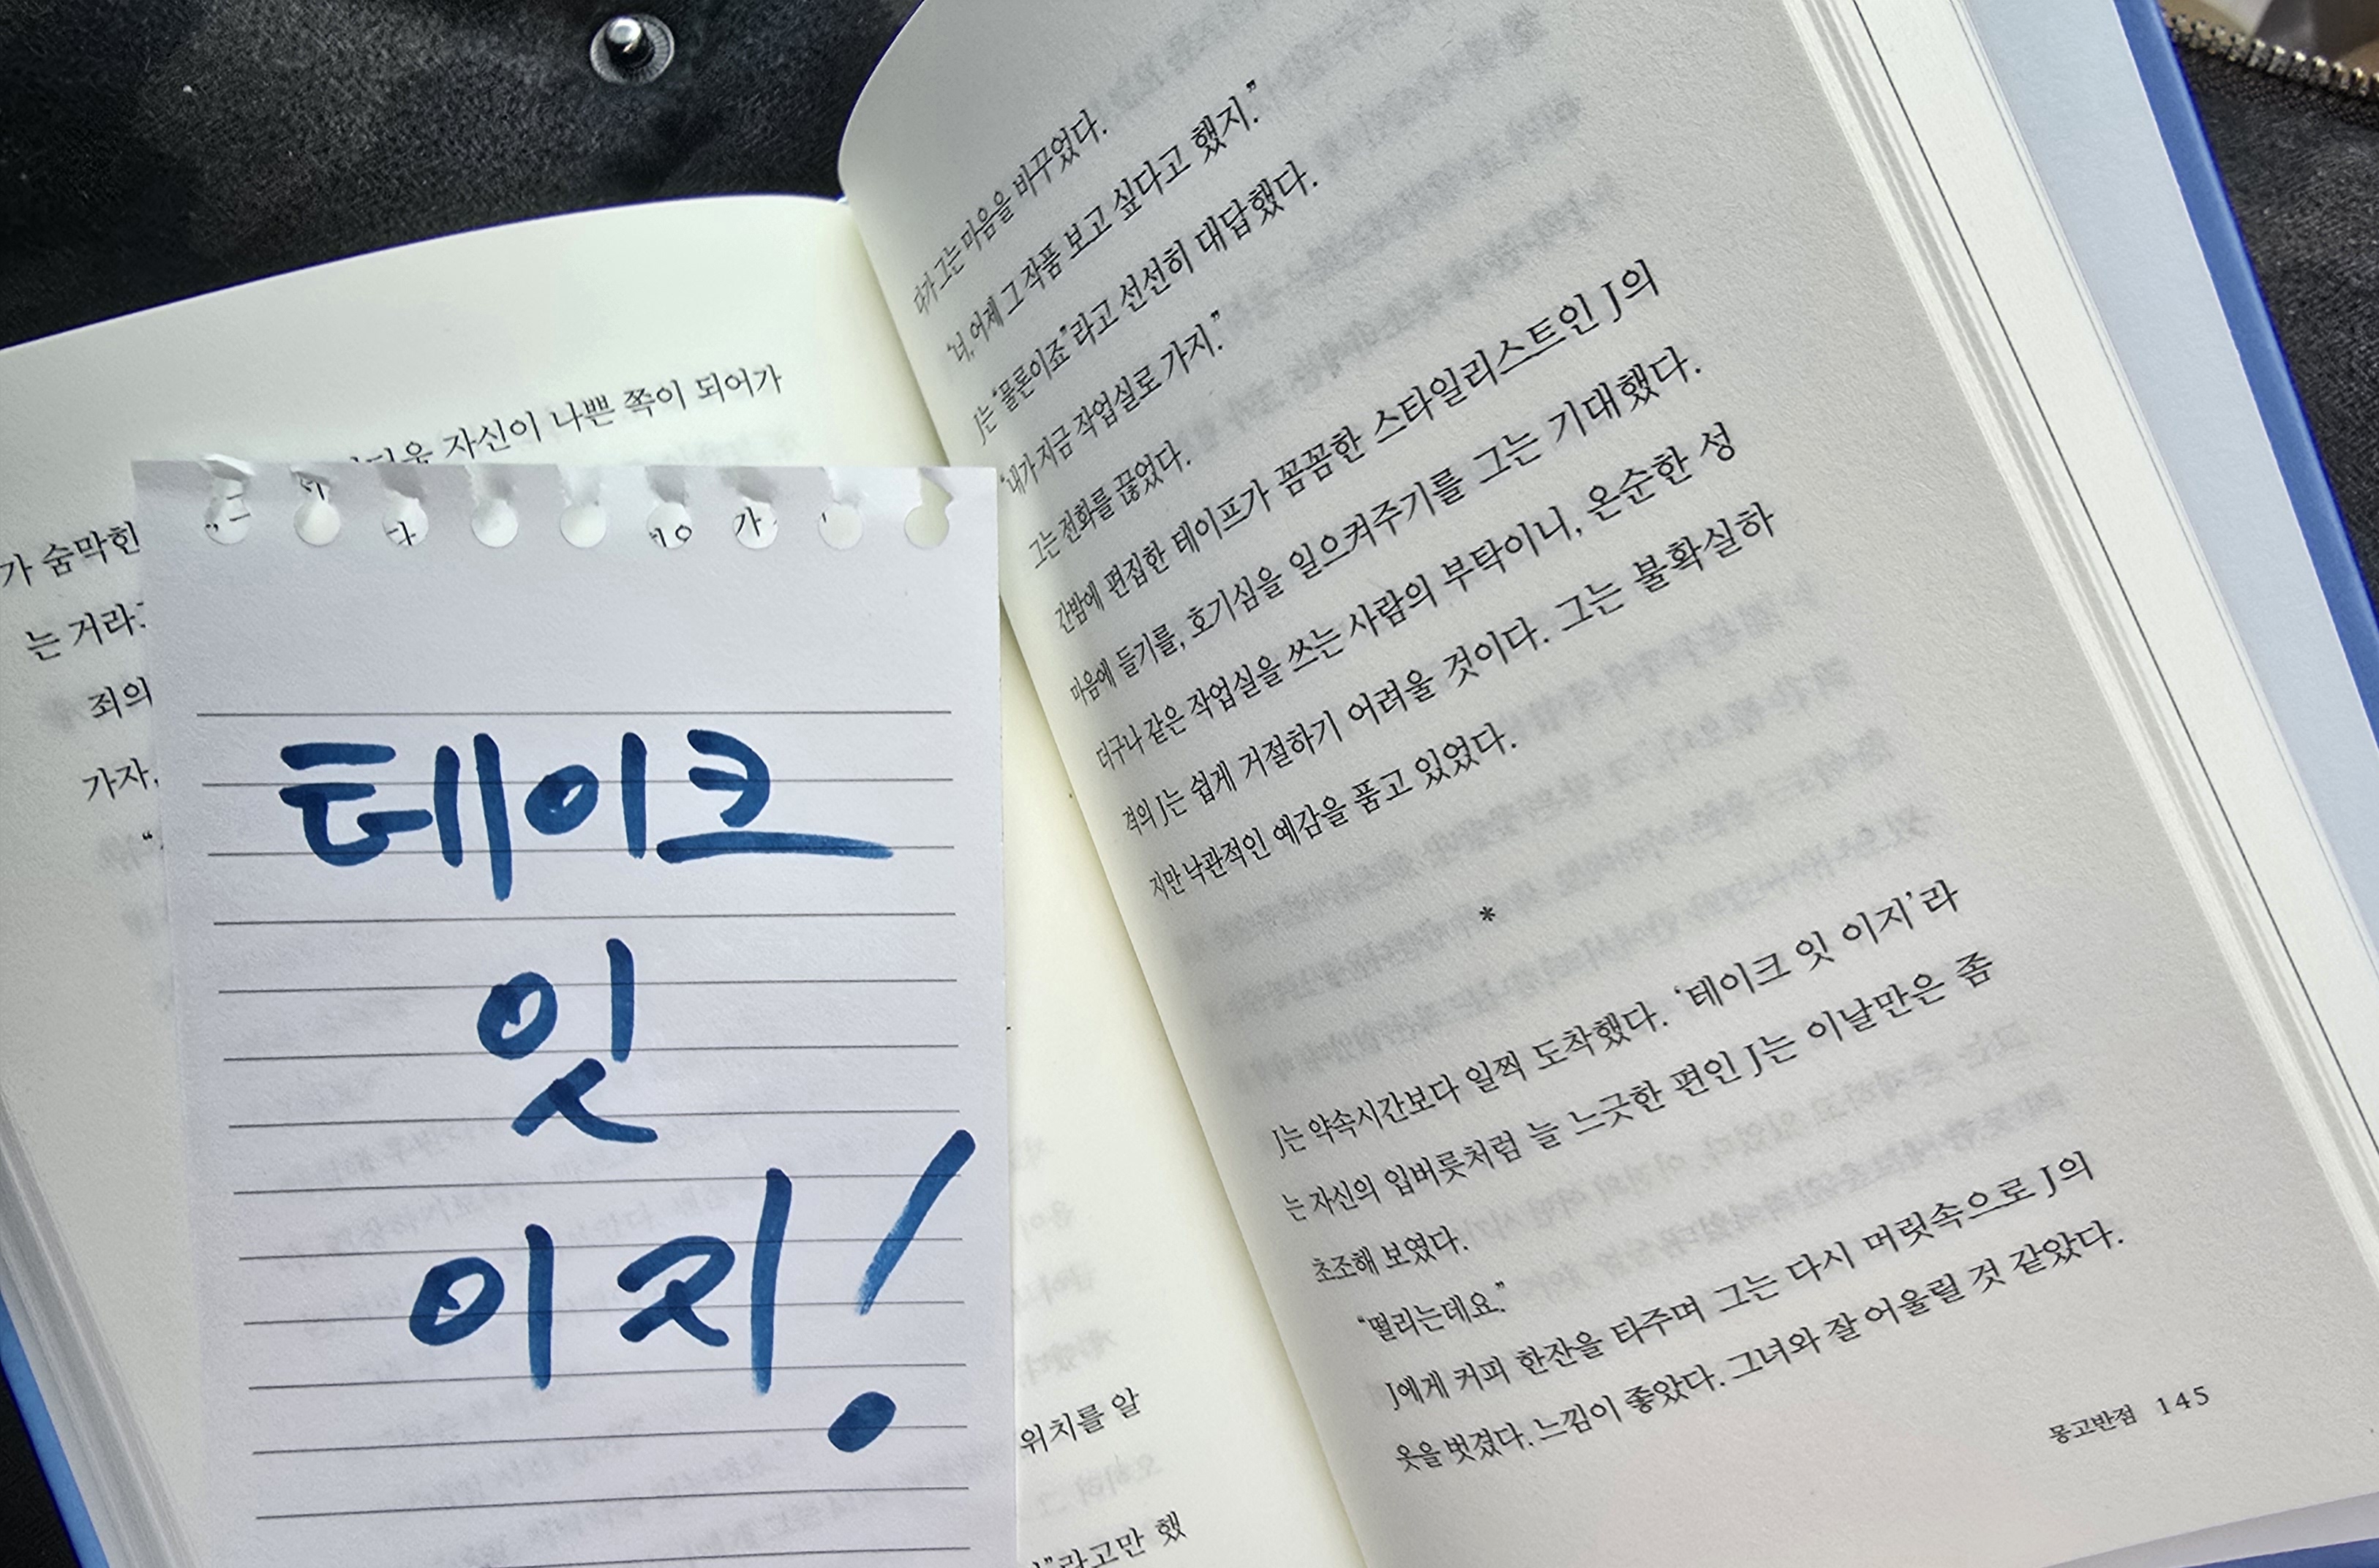 자신이 나쁜 쪽이 되어가
가 숨막힌
는 거라
죄의
가자,
테이크
잇
이지!
위치를 알
"라고만 했
다가 그는 마음을 바꾸었다.
"너, 어제 그 작품 보고 싶다고 했지."
J는 "물론이죠"라고 선선히 대답했다.
"내가 지금 작업실로 가지."
그는 전화를 끊었다.
간밤에 편집한 테이프가 꼼꼼한 스타일리스트인 J의
마음에 들기를, 호기심을 일으켜주기를 그는 기대했다.
더구나 같은 작업실을 쓰는 사람의 부탁이니, 온순한 성
격의 J는 쉽게 거절하기 어려울 것이다. 그는 불확실하
지만 낙관적인 예감을 품고 있었다.
*
J는 약속시간보다 일찍 도착했다. '테이크 잇 이지'라
는 자신의 입버릇처럼 늘 느긋한 편인 J는 이날만은 좀
초조해 보였다.
"떨리는데요."
J에게 커피 한잔을 타주며 그는 다시 머릿속으로 J의
옷을 벗겼다. 느낌이 좋았다. 그녀와 잘 어울릴 것 같았다.
몽고반점 145